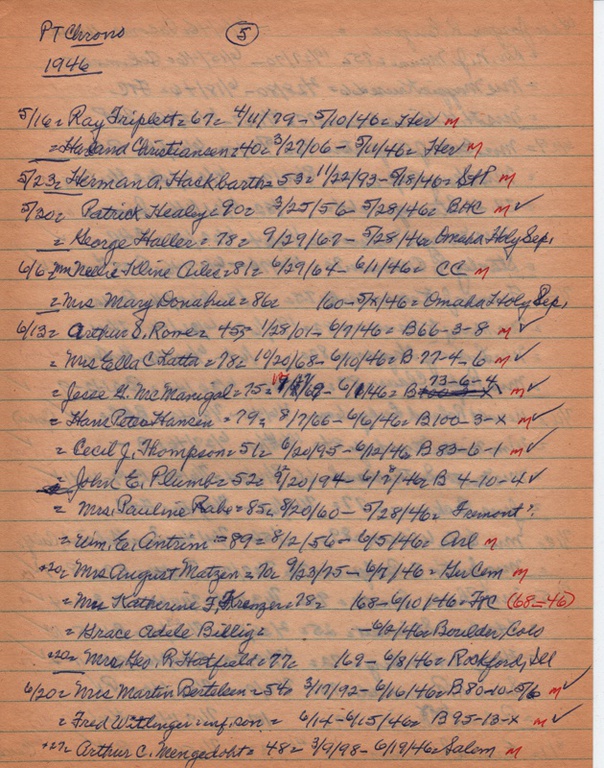 PT Chrono ⑤
1946
5/16 = Ray Triplett = 67 = 4/11/79 - 5/10/46 = Her m
= Christiancen = 40 = 3/27/06 - 5/11/46 = Her m
5/23 = Herman A. Hackbarth = 53 = 11/22/93 - 5/18/46 = StP m
5/30 = Patrick Healey = 90 = 3/25/56 - 5/28/46 = BHC m ✓
= George Haller = 78 = 9/29/67 - 5/28/46 = Omaha Holy Sep.
6/6 = Mrs Kline = 81 = 6/29/64 - 6/1/46 = CC m
= Mrs Mary Donahue = 86 = 160 - 5/x/46 = Omaha Holy Sep.
6/13 = Arthur S. Rowe = 45 = 1/28/01 - 6/7/46 = B 66-3-8 m ✓
= Mrs Ella C Latta = 78 = 10/20/68 - 6/10/46 = B 77-4-6 m ✓
= Jesse G. McManigal = 75 = - 6/1/46 = B 73-6-4 m ✓
= Hans Peter Hansen = 79 = 8/7/66 - 6/6/46 = B100-3-x m ✓
= Cecil J. Thompson = 51 = 6/20/95 - 6/12/46 B 83-6-1 m ✓
= John E. Plumb = 52 = /20/94 - 6/ /46 = B 4-10-4 ✓
= Mrs. Pauline Rabe = 85 = 8/20/60 - 5/28/46 = Fremont
= Wm. E. Antrim = 89 = 8/2/56 - 6/5/46 = Arl m
*20 = Mrs August Matzen = 70 = 9/23/75 - 6/7/46 = GerCem m
= Mrs Katherine F. Krenzer = 78 = 168 - 6/10/46 = FtC (68-46)
= Grace Adele Billig = - 6/2/46 = Boulder, Colo
*20 = Mrs. Geo. R Hatfield = 77 = 169 - 6/8/46 = Rockford, Ill
6/20 = Mrs Martin Bertelsen = 54 = 3/17/92 - 6/16/46 = B 80-10-5/6 m ✓
= Fred Wittlinger = inf. son = 6/14 - 6/15/46 = B 95-13-x m ✓
*27 = Arthur C. Mengedoht = 48 = 3/9/98 - 6/19/46 = Salem m